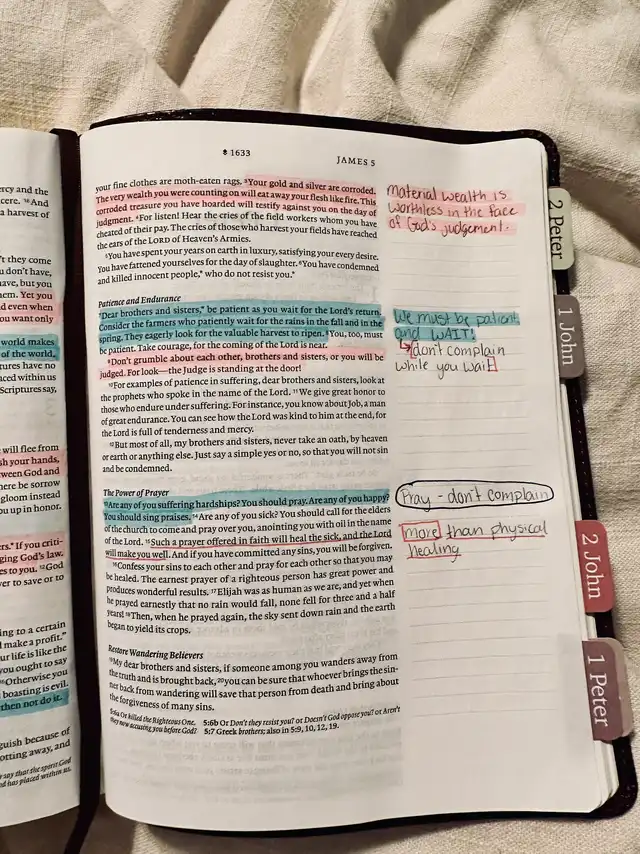 ercy and the
cere. 18And
a harvest of
't they come
u don't have,
ave, but you
hem. Yet you
d even when
ou want only
world makes
of the world,
tures have no
aced within us
Scriptures say,
will flee from
sh your hands,
tween God and
here be sorrow
gloom instead
ou up in honor.
ers." If you criti-
ging God's law.
es to you. 12God
ver to save or to
ing to a certain
make a profit."
ur life is like the
you ought to say
16Otherwise you
boasting is evil.
then not do it.
guish because of
otting away, and
r say that the spirit God
d has placed within us.
1633
JAMES 5
your fine clothes are moth-eaten rags. 3Your gold and silver are corroded.
The very wealth you were counting on will eat away your flesh like fire. This
corroded treasure you have hoarded will testify against you on the day of
judgment. 4For listen! Hear the cries of the field workers whom you have
cheated of their pay. The cries of those who harvest your fields have reached
the ears of the LORD of Heaven's Armies.
5You have spent your years on earth in luxury, satisfying your every desire.
You have fattened yourselves for the day of slaughter. 6You have condemned
and killed innocent people,* who do not resist you.*
Patience and Endurance
7Dear brothers and sisters,* be patient as you wait for the Lord's return.
Consider the farmers who patiently wait for the rains in the fall and in the
spring. They eagerly look for the valuable harvest to ripen. 8You, too, must
be patient. Take courage, for the coming of the Lord is near.
9Don't grumble about each other, brothers and sisters, or you will be
judged. For look—the Judge is standing at the door!
10For examples of patience in suffering, dear brothers and sisters, look at
the prophets who spoke in the name of the Lord. 11We give great honor to
those who endure under suffering. For instance, you know about Job, a man
of great endurance. You can see how the Lord was kind to him at the end, for
the Lord is full of tenderness and mercy.
12But most of all, my brothers and sisters, never take an oath, by heaven
or earth or anything else. Just say a simple yes or no, so that you will not sin
and be condemned.
The Power of Prayer
13Are any of you suffering hardships? You should pray. Are any of you happy?
You should sing praises. 14Are any of you sick? You should call for the elders
of the church to come and pray over you, anointing you with oil in the name
of the Lord. 15Such a prayer offered in faith will heal the sick, and the Lord
will make you well. And if you have committed any sins, you will be forgiven.
16Confess your sins to each other and pray for each other so that you may
be healed. The earnest prayer of a righteous person has great power and
produces wonderful results. 17Elijah was as human as we are, and yet when
he prayed earnestly that no rain would fall, none fell for three and a half
years! 18Then, when he prayed again, the sky sent down rain and the earth
began to yield its crops.
Restore Wandering Believers
19My dear brothers and sisters, if someone among you wanders away from
the truth and is brought back, 20you can be sure that whoever brings the sin-
ner back from wandering will save that person from death and bring about
the forgiveness of many sins.
5:6a Or killed the Righteous One. 5:6b Or Don't they resist you? or Doesn't God oppose you? or Aren't
they now accusing you before God? 5:7 Greek brothers; also in 5:9, 10, 12, 19.
Material wealth is
worthless in the face
of God's judgement.
We must be patient
and WAIT!
don't complain
while you wait
Pray - don't complain
more than physical
healing
2 Peter
1 John
2 John
1 Peter